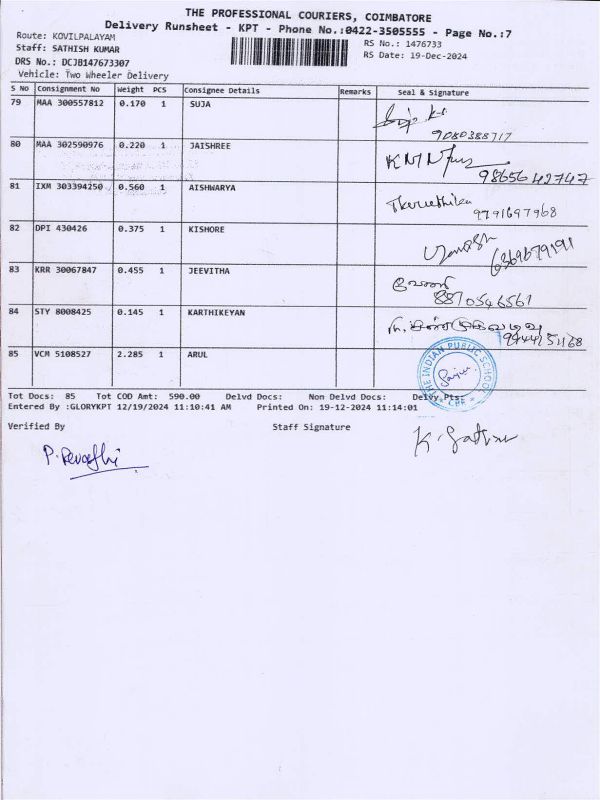 THE PROFESSIONAL COURIERS, COIMBATORE
Delivery Runsheet - KPT - Phone No.:0422-3505555 - Page No.:7
Route: KOVILPALAYAM
Staff: SATHISH KUMAR
DRS No.: DCJB147673307
Vehicle: Two Wheeler Delivery
RS No.: 1476733
RS Date: 19-Dec-2024
S No Consignment No Weight PCS Consignee Details Remarks Seal & Signature
79 MAA 300557812 0.170 1 SUJA
9080388717
80 MAA 302590976 0.220 1 JAISHREE
98656 42747
81 IXM 303394250 0.560 1 AISHWARYA
9791697968
82 DPI 430426 0.375 1 KISHORE
6369679191
83 KRR 30067847 0.455 1 JEEVITHA
8870546561
84 STY 8008425 0.145 1 KARTHIKEYAN
85 VCM 5108527 2.285 1 ARUL
THE INDIAN PUBLIC SCHOOL
CBE
Tot Docs: 85 Tot COD Amt: 590.00 Delvd Docs: Non Delvd Docs: Delvy.Pts:
Entered By :GLORYKPT 12/19/2024 11:10:41 AM Printed On: 19-12-2024 11:14:01
Verified By Staff Signature
P. Revathi